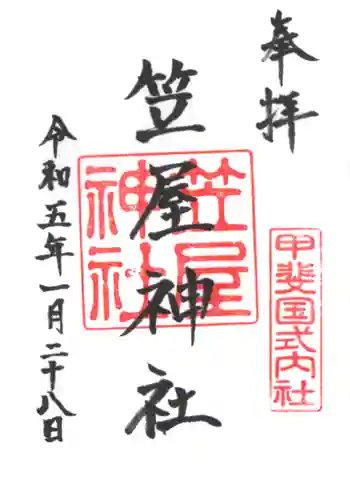 奉拝
甲斐国式内社
笠屋神社
笠屋
神社
令和五年一月二十八日